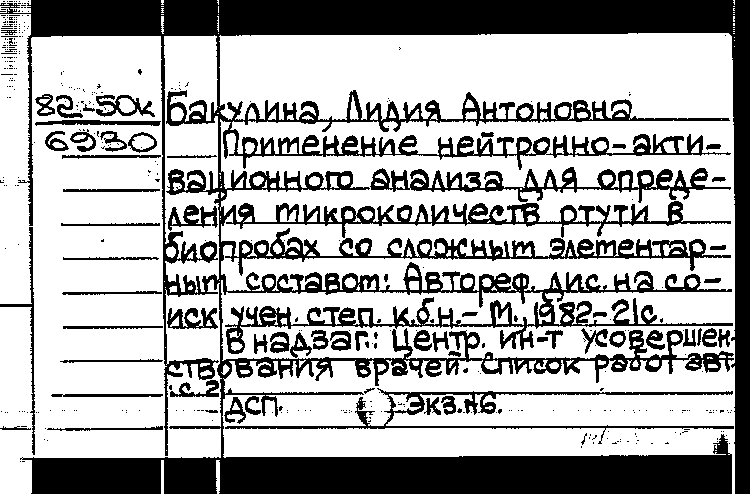 82-50к
6930
Бакулина, Лидия Антоновна.
Применение нейтронно-акти-
вационного анализа для опреде-
ления микроколичеств ртути в
биопробах со сложным элементар-
ным составом: Автореф. дис. на со-
иск учен. степ. к.б.н.- М., 1982-21с.
В надзаг.: Центр. ин-т усовершен-
ствования врачей. Список работ авт
.:с. 21.
ДСП. Экз.№6.